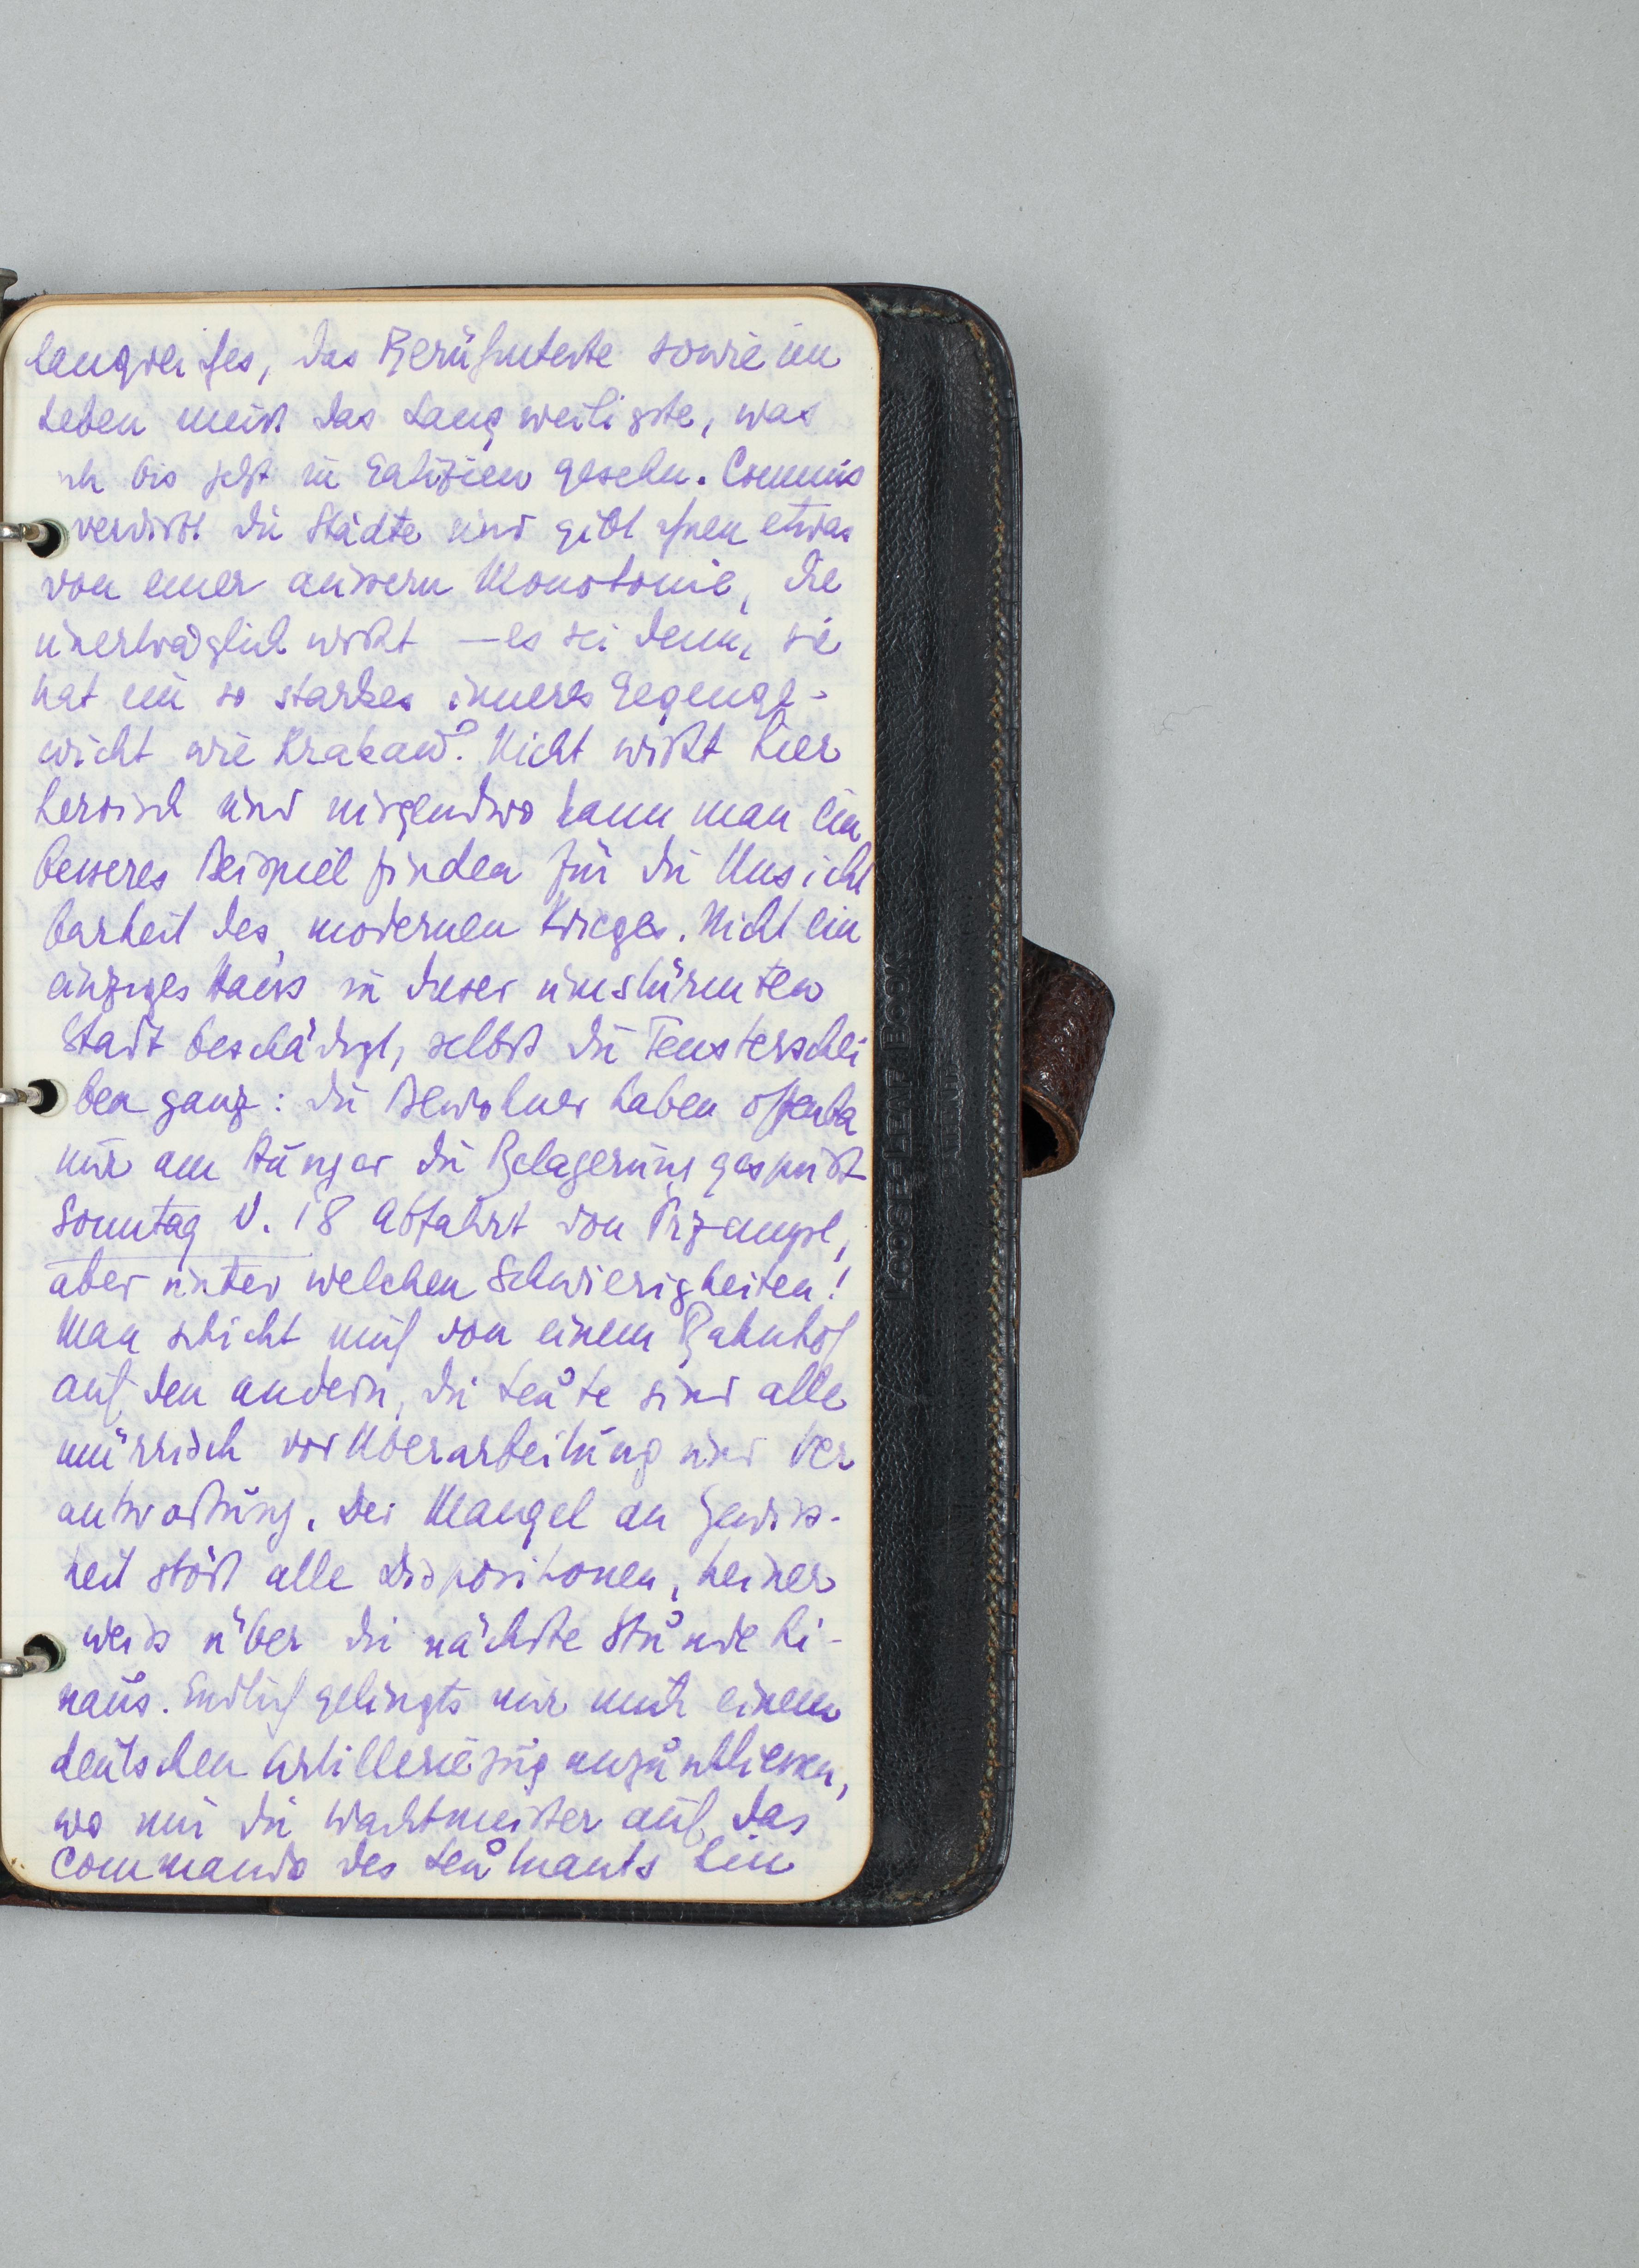 langweiliges, das Berühmteste sowie im
Leben meist das Langweiligste, was
ich bis jetzt in Galizien gesehn. Commis
verdirbt die Städte und gibt ihnen etwas
von einer äussern Monotonie, die
unerträglich wirkt – es sei denn, sie
hat ein so starkes inneres Gegenge-
wicht wie Krakau. Nicht wirkt hier
heroisch und nirgendwo kann man ein
besseres Beispiel finden für die Unsicht
barkeit des modernen Krieges. Nicht ein
einziges Haus in dieser umstürmten
Stadt beschädigt, selbst die Fensterschei
ben ganz: die Bewohner haben offenba
nur am Hunger die Belagerung gespürt
Sonntag V. 18 Abfahrt von Przempsl,
aber unter welchen Schwierigkeiten!
Man schickt mich von einem Bahnhof
auf den andern, die Leute sind alle
mürrisch vor Überarbeitung und Ver
antwortung. Der Mangel an Gewiss-
heit stört alle Dispositionen, keiner
weiss über die nächste Stunde hi-
naus. Endlich gelingts mir mich einem
deutschen Artilleriezug anzuschliessen,
wo mir die Wachtmeister auf das
Commando des Leutnants hin
LOOSE-LEAF BOOK